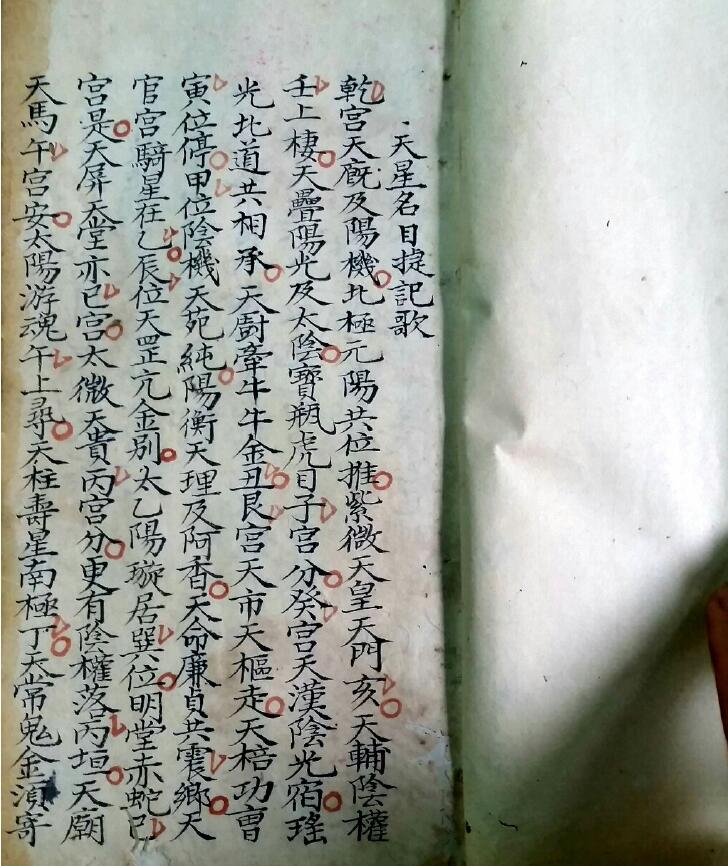 天星名目捷記歌
乾宮天廐及陽機北極元陽共位推紫微天皇天門亥天輔陰權
壬上棲天疊陽光及太陰寶瓶虎目子宮分癸宮天漢陰光宿瑤
光北道共相承天廚牽牛牛金丑艮宮天市天樞走天棓功曹
寅位停甲位陰機天苑純陽衡天理及阿香天命廉貞共震鄉天
官宮騎星在乙辰位天罡亢金別太乙陽璇居巽位明堂赤蛇巳
宮是天屏天堂亦巳宮太微天貴丙宮分更有陰權落丙垣天廟
天馬午宮安太陽游魂午上尋天柱壽星南極丁天常鬼金湏寄